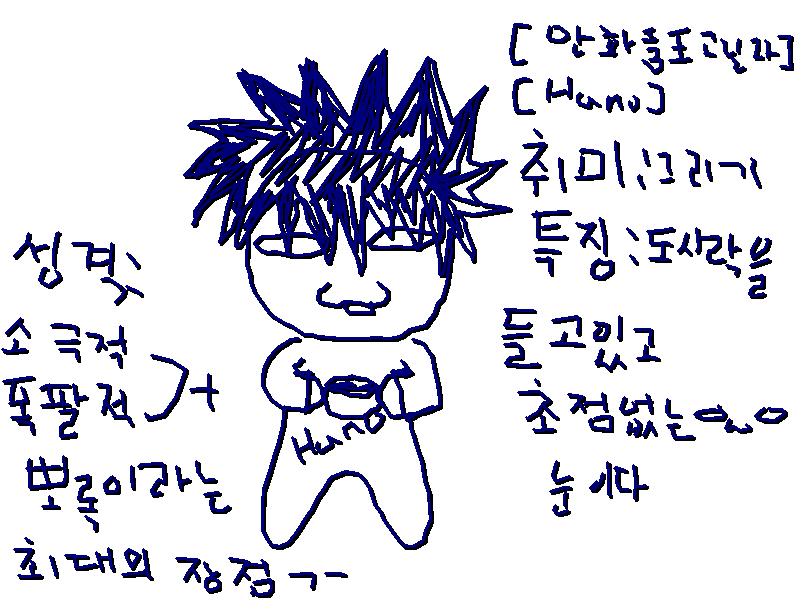 [만화풀포고릴라]
[Hano]
취미:그리기
특징:도시락을
들고있고
초점없는ㅇㅅㅇ
눈이다
성격:
소극적
폭팔적 > +
뽀록이라는
최대의 장점ㄱㅡ
Hano